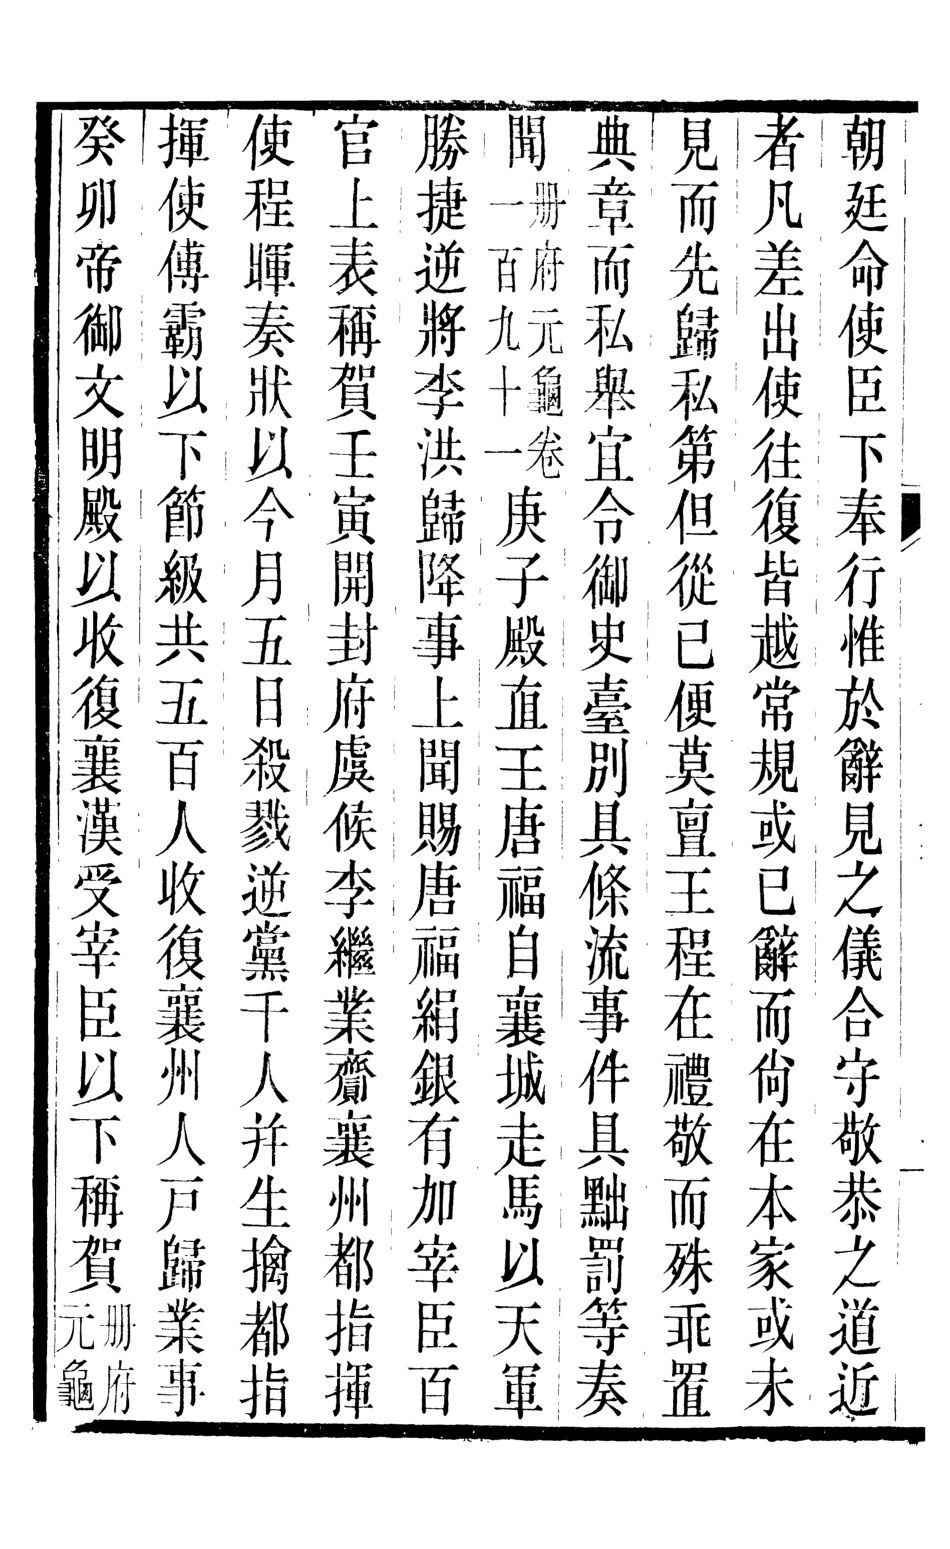 朝廷命使臣下奉行惟於辭見之儀合守敬恭之道近
者凡差出使往復皆越常規或已辭而尙在本家或未
見而先歸私第但從已便莫亶王程在禮敬而殊乖置
典章而私舉宜令御史臺別具條流事件具黜罰等奏
聞冊府元龜卷一百九十一庚子殿直王唐福自襄城走馬以天軍
勝捷逆將李洪歸降事上聞賜唐福絹銀有加宰臣百
官上表稱賀壬寅開封府虞候李繼業齎襄州都指揮
使程暉奏狀以今月五日殺戮逆黨千人并生擒都指
揮使傅霸以下節級共五百人收復襄州人戸歸業事
癸卯帝御文明殿以收復襄漢受宰臣以下稱賀冊府元龜